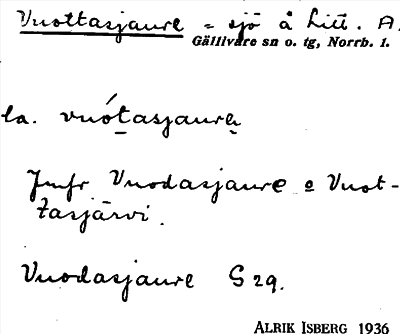 Vuottasjaure = sjö å Litt. A.
Gällivare sn o. tg, Norrb. l.
la. vuótasjaurę
Jmfr Vuodasjaure o Vuot-
tasjärvi.
Vuodasjaure G 29.
ALRIK ISBERG 1936